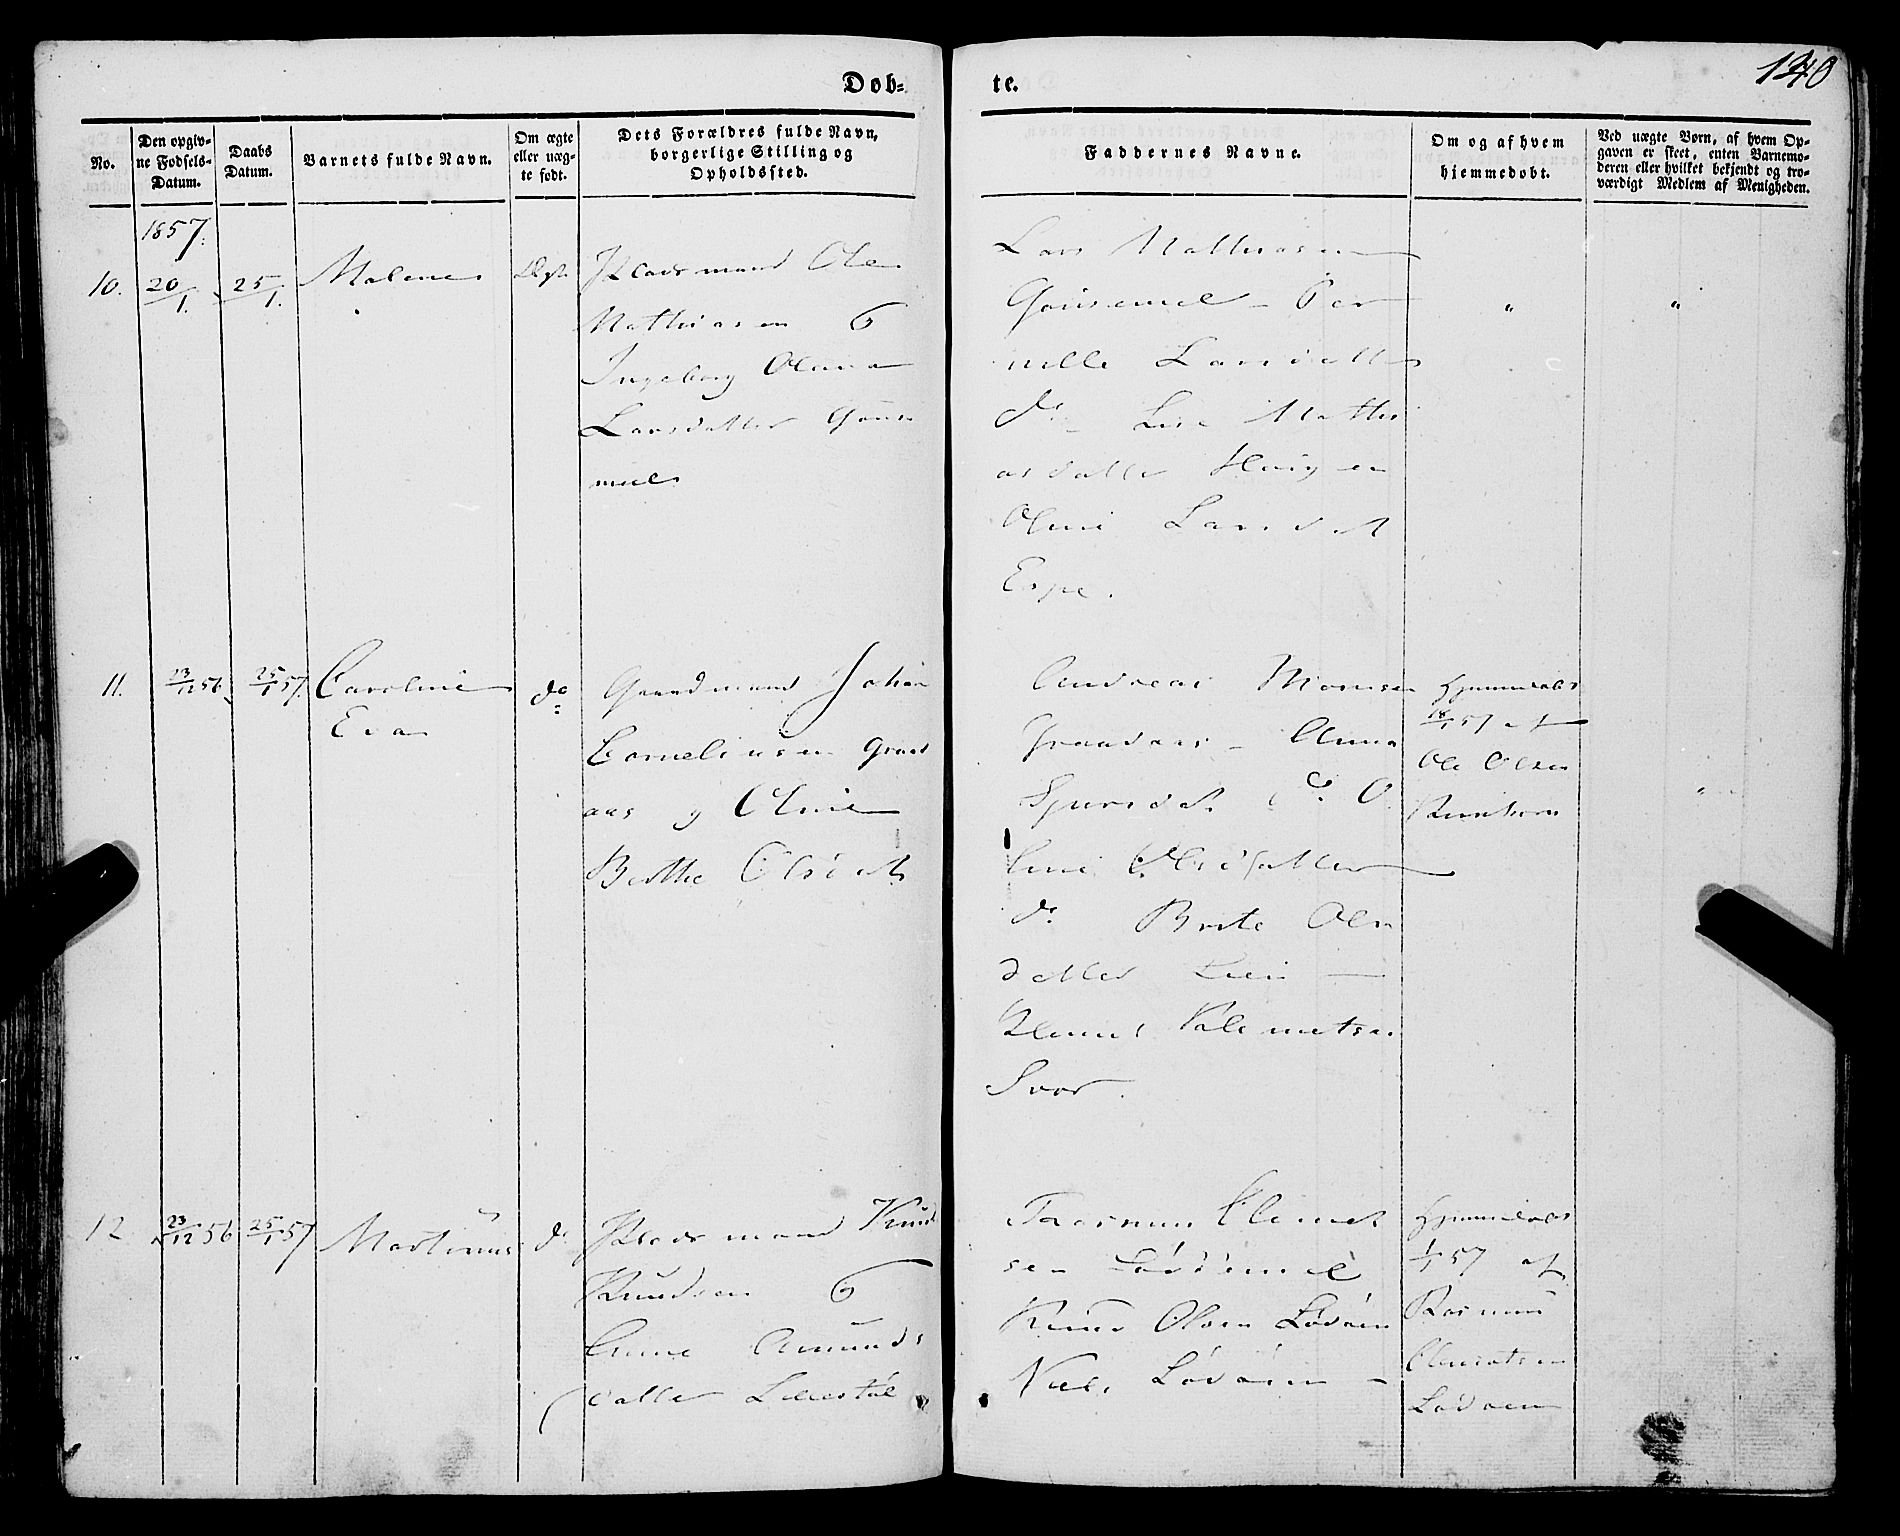 Døb-
te.
140
No.
Den opgiv-
ne Fødsels-
Datum.
Daabs
Datum.
Barnets fulde Navn.
Om ægte
eller uæg-
te født.
Dets Forældres fulde Navn,
borgerlige Stilling og
Opholdssted.
Faddernes Navne.
Om og af hvem
hjemmedøbt.
Ved uægte Børn, af hvem Op-
gaven er skeet, enten Barnemo-
deren eller hvilket bekjendt og tro-
værdigt Medlem af Menigheden.
1857.
10.
20/1.
25/1.
Malene
Ægt.
Pladsmand Ole
Mathiasen &
Ingeborg Oluna
Larsdatter
Lars Mathiasen
Per
nille Larsdatter
do Lise Mathi
asdatter Haugen
Oline Larsdat
Espe.
"
"
11.
23/12 56
25/1 57
Caroline
Eva
do
Gaardmand Johan
Corneliusen Graad
aas og Oline
Berthe Olsdat
Andreas Monsen
Graadaas - Anna
Sjursdat. do O
line Olsdatter
do Brite Ols
datter
Klemetsen
Hjemmedøbt
18/1 57 af
Ole Olsen
"
12
23/12 56
25/1 57
Martinus
do
Pladsmand Knud
Knudsen &
Anne Amunds
datter
Rasmus Clemet
sen
Knud Olsen Lødøen
Niels Lødøen
Hjemmedøbt
1/1 57 af
Rasmus
Clemetsen
Lødøen